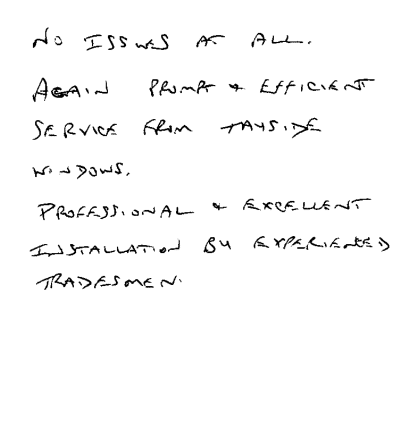 NO ISSUES AT ALL.
AGAIN PROMPT & EFFICIENT
SERVICE FROM TAYSIDE
WINDOWS.
PROFESSIONAL & EXCELLENT
INSTALLATION BY EXPERIENCED
TRADESMEN.